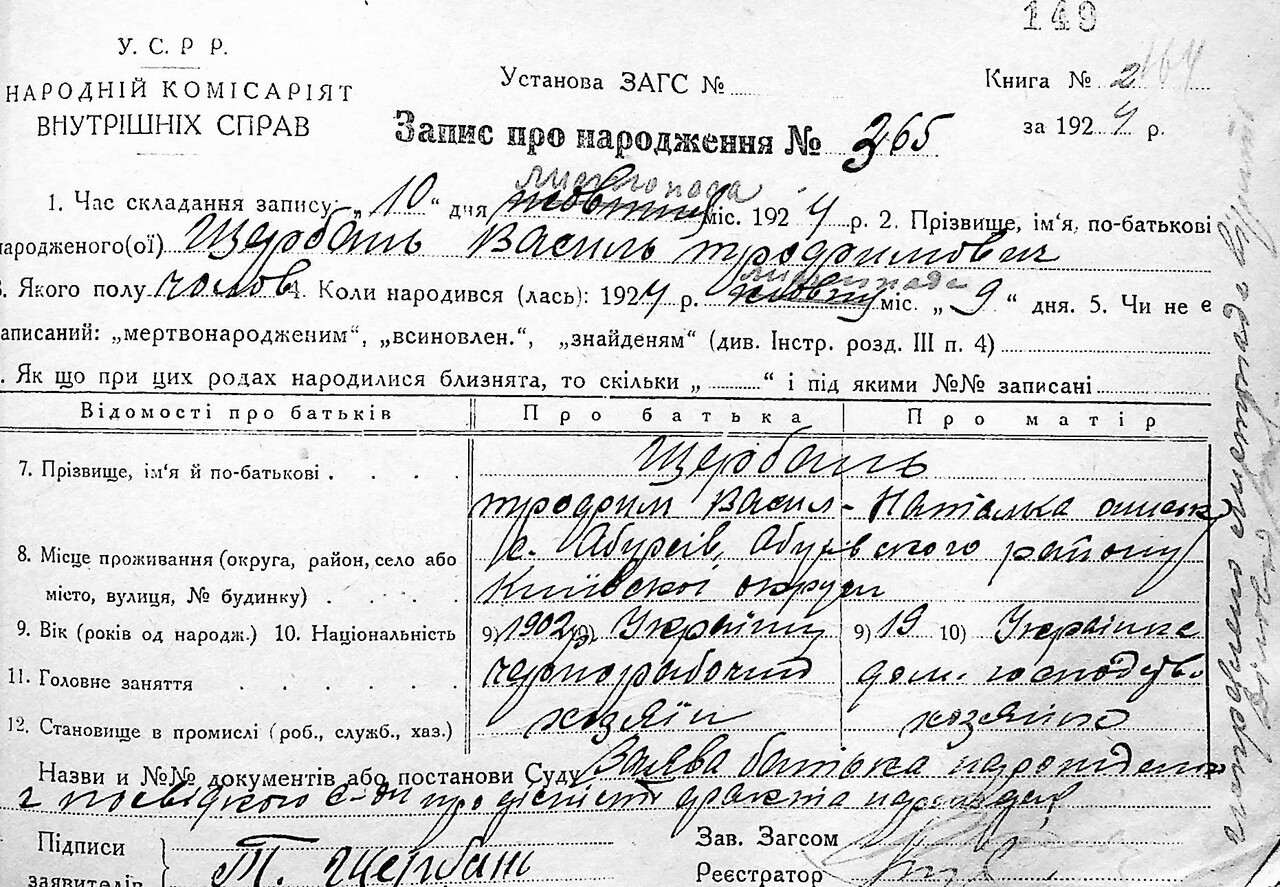 149
164
У. С. Р Р.
НАРОДНІЙ КОМІСАРІЯТ
ВНУТРІШНІХ СПРАВ
Установа ЗАГС №
Книга № 2
за 1924 р.
Запис про народження № 365
листопада
1. Час складання запису: „10“ дня жовтня міс. 1924 р. 2. Прізвище, ім‘я, по-батькові
народженого(ої) Щербань Василь Трофимович
листопада
3. Якого полу чолов 4. Коли народився (лась): 1924 р. жовтня міс. „9“ дня. 5. Чи не є
записаний: „мертвонародженим“, „всиновлен.“, „знайденям“ (див. Інстр. розд. III п. 4)
. Як що при цих родах народилися близнята, то скільки „ “ і під якими №№ записані
Відомості про батьків Про батька Про матір
7. Прізвище, ім‘я й по-батькові . . . . Щербань
Трофим Васил- Наталка
8. Місце проживання (округа, район, село або с. Обухів, Обухівського району
місто, вулиця, № будинку) . . . . . Київскої округи
9. Вік (років од народж.) 10. Національність 9) 1902 10) Українец 9) 19 10) Українка
11. Головне заняття . . . . . . чернорабочий дом. господаств.
12. Становище в промислі (роб., служб., хаз.) хозяїн хозяйка
Назви и №№ документів або постанови Суду Заява батька
з посвідкою про дісність факта
Підписи
заявителів Т. Щербань
Зав. Загсом
Реєстратор
виправлено листопада вірить